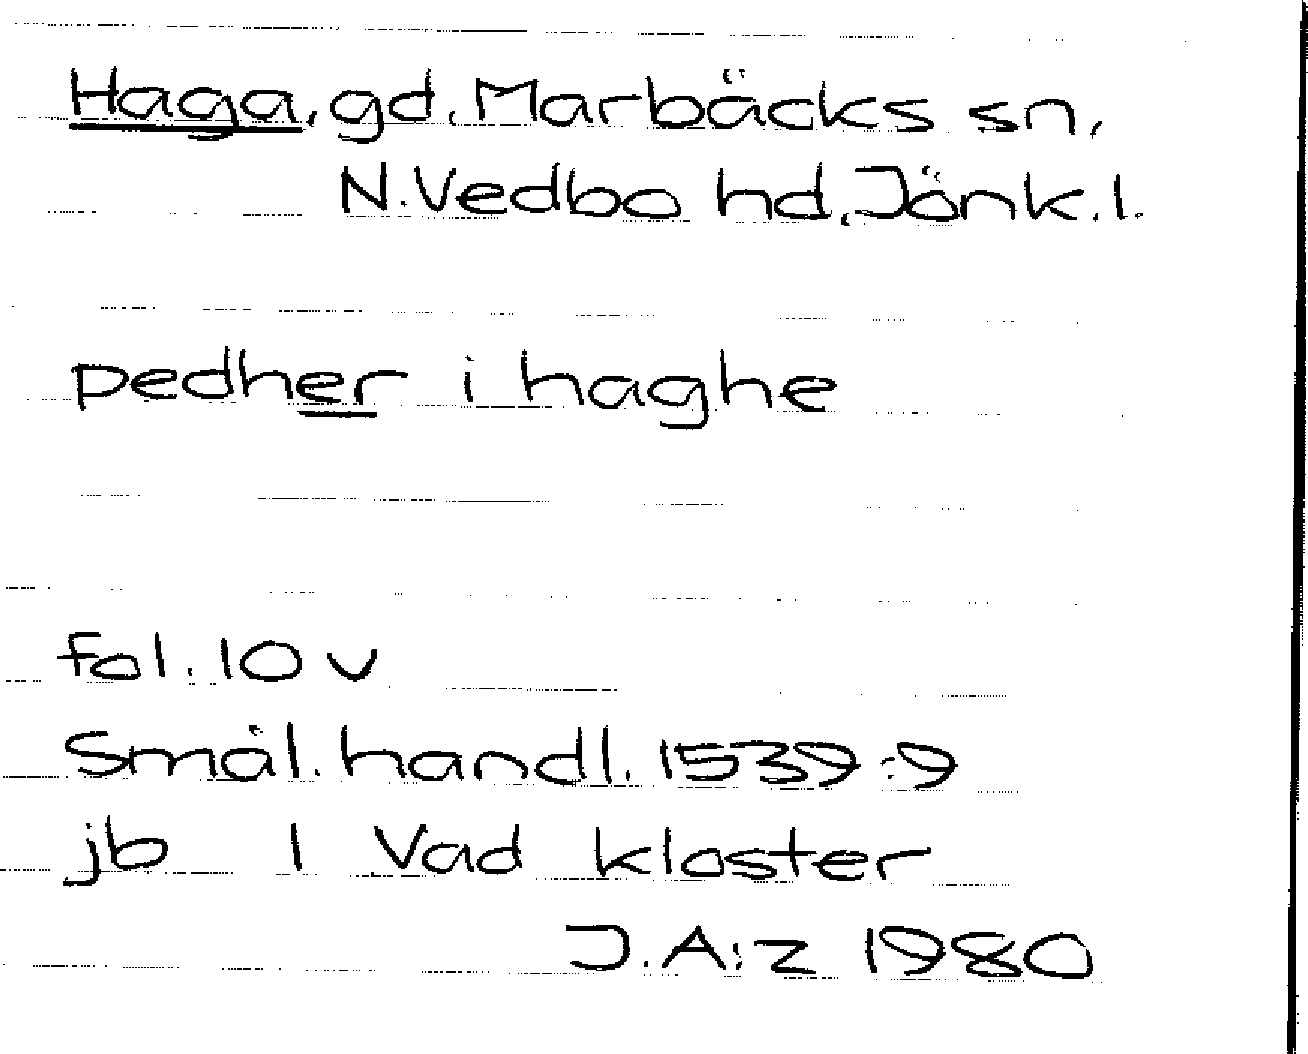 Haga, gd, Marbäcks sn,
N.Vedbo hd, Jönk.l.
pedher i haghe
fol. 10 v
Smål. handl. 1539:9
jb 1 Vad kloster
J.A:z 1980